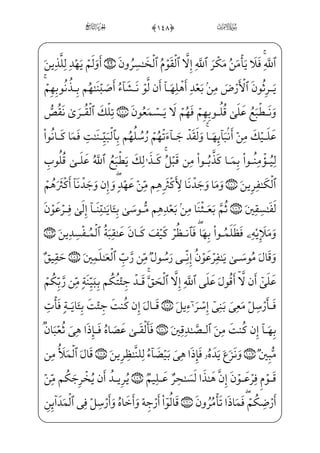 سُورَةُ الأَعْرَافِ ﴿١٤٨﴾ الجُزْءُ التَّاسِعُ
ٱللَّهِۚ فَلَا يَأْمَنُ مَكْرَ ٱللَّهِ إِلَّا ٱلْقَوْمُ ٱلْخَٰسِرُونَ ۝٩٩ أَوَلَمْ يَهْدِ لِلَّذِينَ
يَرِثُونَ ٱلْأَرْضَ مِنۢ بَعْدِ أَهْلِهَآ أَن لَّوْ نَشَآءُ أَصَبْنَٰهُم بِذُنُوبِهِمْۚ
وَنَطْبَعُ عَلَىٰ قُلُوبِهِمْ فَهُمْ لَا يَسْمَعُونَ ۝١٠٠ تِلْكَ ٱلْقُرَىٰ نَقُصُّ
عَلَيْكَ مِنْ أَنۢبَآئِهَاۚ وَلَقَدْ جَآءَتْهُمْ رُسُلُهُم بِٱلْبَيِّنَٰتِ فَمَا كَانُوا۟
لِيُؤْمِنُوا۟ بِمَا كَذَّبُوا۟ مِن قَبْلُۚ كَذَٰلِكَ يَطْبَعُ ٱللَّهُ عَلَىٰ قُلُوبِ
ٱلْكَٰفِرِينَ ۝١٠١ وَمَا وَجَدْنَا لِأَكْثَرِهِم مِّنْ عَهْدٍۖ وَإِن وَجَدْنَآ أَكْثَرَهُمْ
لَفَٰسِقِينَ ۝١٠٢ ثُمَّ بَعَثْنَا مِنۢ بَعْدِهِم مُّوسَىٰ بِـَٔايَٰتِنَآ إِلَىٰ فِرْعَوْنَ
وَمَلَإِي۟هِۦ فَظَلَمُوا۟ بِهَاۖ فَٱنظُرْ كَيْفَ كَانَ عَٰقِبَةُ ٱلْمُفْسِدِينَ ۝١٠٣
وَقَالَ مُوسَىٰ يَٰفِرْعَوْنُ إِنِّى رَسُولٌ مِّن رَّبِّ ٱلْعَٰلَمِينَ ۝١٠٤ حَقِيقٌ
عَلَىٰٓ أَن لَّآ أَقُولَ عَلَى ٱللَّهِ إِلَّا ٱلْحَقَّۚ قَدْ جِئْتُكُم بِبَيِّنَةٍ مِّن رَّبِّكُمْ
فَأَرْسِلْ مَعِىَ بَنِىٓ إِسْرَٰٓءِيلَ ۝١٠٥ قَالَ إِن كُنتَ جِئْتَ بِـَٔايَةٍ فَأْتِ
بِهَآ إِن كُنتَ مِنَ ٱلصَّٰدِقِينَ ۝١٠٦ فَأَلْقَىٰ عَصَاهُ فَإِذَا هِىَ ثُعْبَانٌ
مُّبِينٌ ۝١٠٧ وَنَزَعَ يَدَهُۥ فَإِذَا هِىَ بَيْضَآءُ لِلنَّٰظِرِينَ ۝١٠٨ قَالَ ٱلْمَلَأُ مِن
قَوْمِ فِرْعَوْنَ إِنَّ هَٰذَا لَسَٰحِرٌ عَلِيمٌ ۝١٠٩ يُرِيدُ أَن يُخْرِجَكُم مِّنْ
أَرْضِكُمْۖ فَمَاذَا تَأْمُرُونَ ۝١١٠ قَالُوٓا۟ أَرْجِهْ وَأَخَاهُ وَأَرْسِلْ فِى ٱلْمَدَآئِنِ